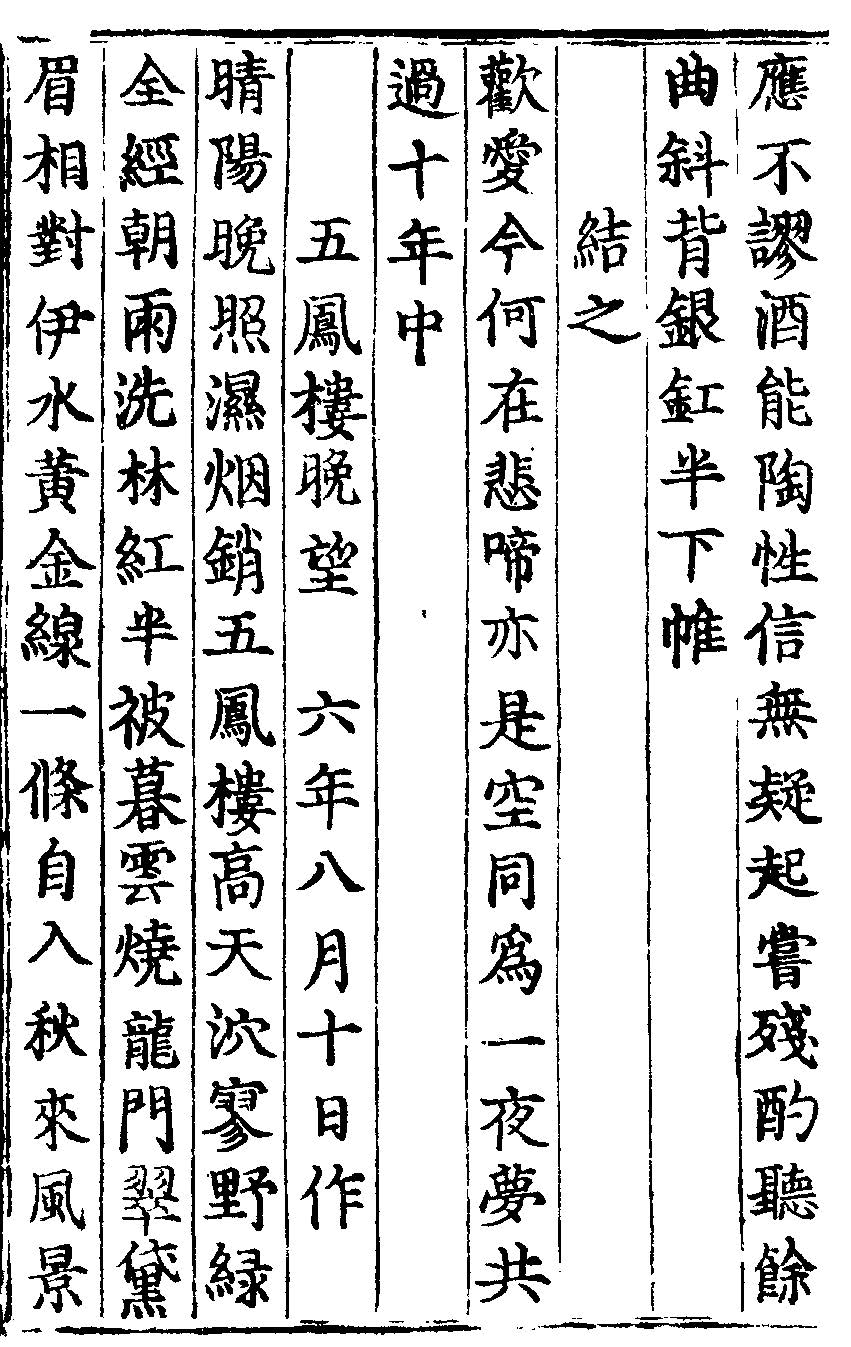 應不謬酒能陶性信無疑起嘗殘酌聽餘
曲斜背銀釭半下帷
結之
歡愛今何在悲啼亦是空同爲一夜夢共
過十年中
五鳳樓晚望 六年八月十日作
晴陽晚照濕烟銷五鳳樓高天泬寥野緑
全經朝雨洗林紅半被暮雲燒龍門翠黛
眉相對伊水黄金線一條自入秋來風景